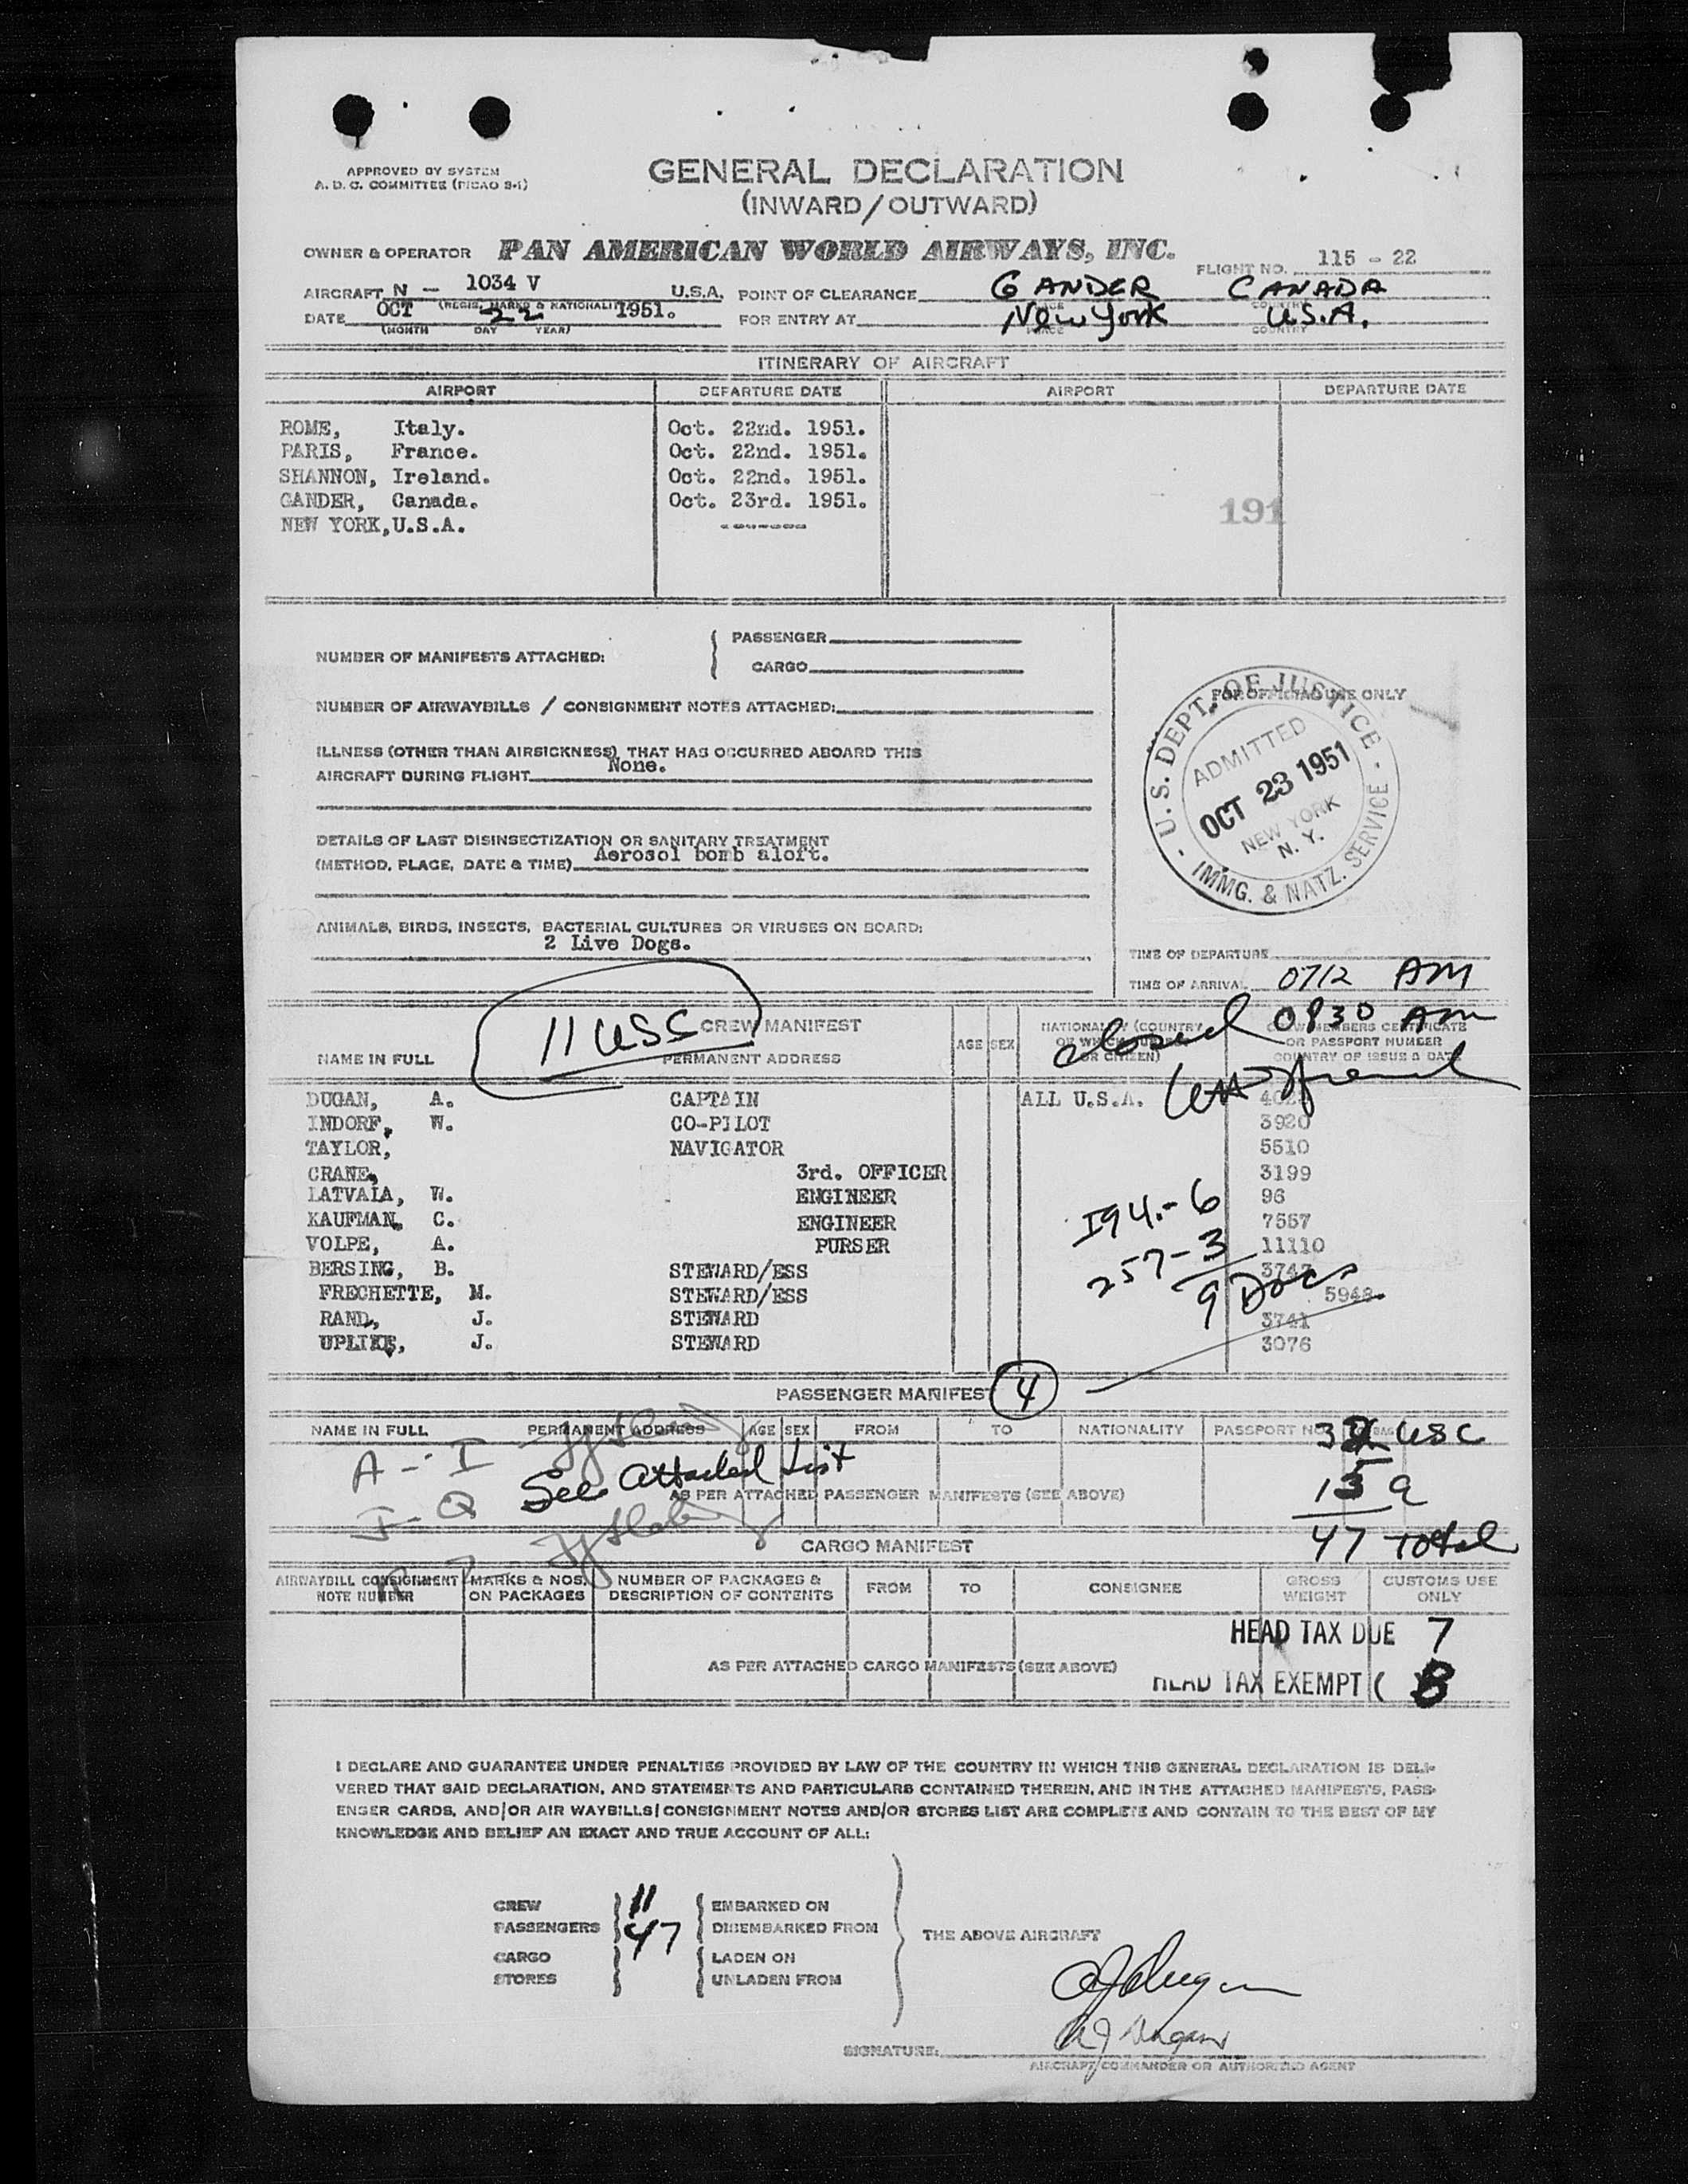 APPROVED BY SYSTEM
A. D. C. COMMITTEE (PICAO S-1)
GENERAL DECLARATION
(INWARD/OUTWARD)
OWNER & OPERATOR PAN AMERICAN WORLD AIRWAYS, INC.
FLIGHT NO. 115 - 22
AIRCRAFT N - 1034 V U.S.A. POINT OF CLEARANCE GANDER CANADA
(REGIS. MARKS & NATIONALITY) PLACE COUNTRY
DATE OCT 22 1951. FOR ENTRY AT New York U.S.A.
(MONTH DAY YEAR) PLACE COUNTRY
ITINERARY OF AIRCRAFT
AIRPORT DEPARTURE DATE AIRPORT DEPARTURE DATE
ROME, Italy. Oct. 22nd. 1951.
PARIS, France. Oct. 22nd. 1951.
SHANNON, Ireland. Oct. 22nd. 1951.
GANDER, Canada. Oct. 23rd. 1951.
NEW YORK, U.S.A. -------
191
NUMBER OF MANIFESTS ATTACHED: { PASSENGER
CARGO
FOR OFFICIAL USE ONLY
NUMBER OF AIRWAYBILLS / CONSIGNMENT NOTES ATTACHED:
ILLNESS (OTHER THAN AIRSICKNESS) THAT HAS OCCURRED ABOARD THIS
AIRCRAFT DURING FLIGHT None.
U.S. DEPT. OF JUSTICE
ADMITTED
OCT 23 1951
NEW YORK
N. Y.
IMMG. & NATZ. SERVICE
DETAILS OF LAST DISINSECTIZATION OR SANITARY TREATMENT
(METHOD, PLACE, DATE & TIME) Aerosol bomb aloft.
ANIMALS, BIRDS, INSECTS, BACTERIAL CULTURES OR VIRUSES ON BOARD:
2 Live Dogs.
TIME OF DEPARTURE
TIME OF ARRIVAL 0712 AM
closed 0830 AM
11 USC
CREW MANIFEST
NAME IN FULL PERMANENT ADDRESS AGE SEX NATIONALITY (COUNTRY OF WHICH SUBJECT OR CITIZEN) CREW MEMBERS CERTIFICATE OR PASSPORT NUMBER COUNTRY OF ISSUE & DATE
DUGAN, A. CAPTAIN ALL U.S.A.
INDORF, W. CO-PILOT 3920
TAYLOR, NAVIGATOR 5510
CRANE, 3rd. OFFICER 3199
LATVALA, W. ENGINEER 96
KAUFMAN, C. ENGINEER 7557
VOLPE, A. PURSER 11110
BERSING, B. STEWARD/ESS 3747
FRECHETTE, M. STEWARD/ESS 5948
RAND, J. STEWARD 3741
UPLIKE, J. STEWARD 3076
I94.-6
257-3
9 Docs
PASSENGER MANIFEST 4
NAME IN FULL PERMANENT ADDRESS AGE SEX FROM TO NATIONALITY PASSPORT NO.
32 USC
A - I
See Attached List
15 a
AS PER ATTACHED PASSENGER MANIFESTS (SEE ABOVE)
47 Total
CARGO MANIFEST
AIRWAYBILL CONSIGNMENT NOTE NUMBER MARKS & NOS. ON PACKAGES NUMBER OF PACKAGES & DESCRIPTION OF CONTENTS FROM TO CONSIGNEE GROSS WEIGHT CUSTOMS USE ONLY
HEAD TAX DUE 7
AS PER ATTACHED CARGO MANIFESTS (SEE ABOVE)
HEAD TAX EXEMPT ( 8
I DECLARE AND GUARANTEE UNDER PENALTIES PROVIDED BY LAW OF THE COUNTRY IN WHICH THIS GENERAL DECLARATION IS DELI-
VERED THAT SAID DECLARATION, AND STATEMENTS AND PARTICULARS CONTAINED THEREIN, AND IN THE ATTACHED MANIFESTS, PASS-
ENGER CARDS, AND/OR AIR WAYBILLS/CONSIGNMENT NOTES AND/OR STORES LIST ARE COMPLETE AND CONTAIN TO THE BEST OF MY
KNOWLEDGE AND BELIEF AN EXACT AND TRUE ACCOUNT OF ALL:
CREW 11 EMBARKED ON
PASSENGERS 47 DISEMBARKED FROM
THE ABOVE AIRCRAFT
CARGO LADEN ON
STORES UNLADEN FROM
A J Dugan
A J Dugan
SIGNATURE:
AIRCRAFT COMMANDER OR AUTHORIZED AGENT